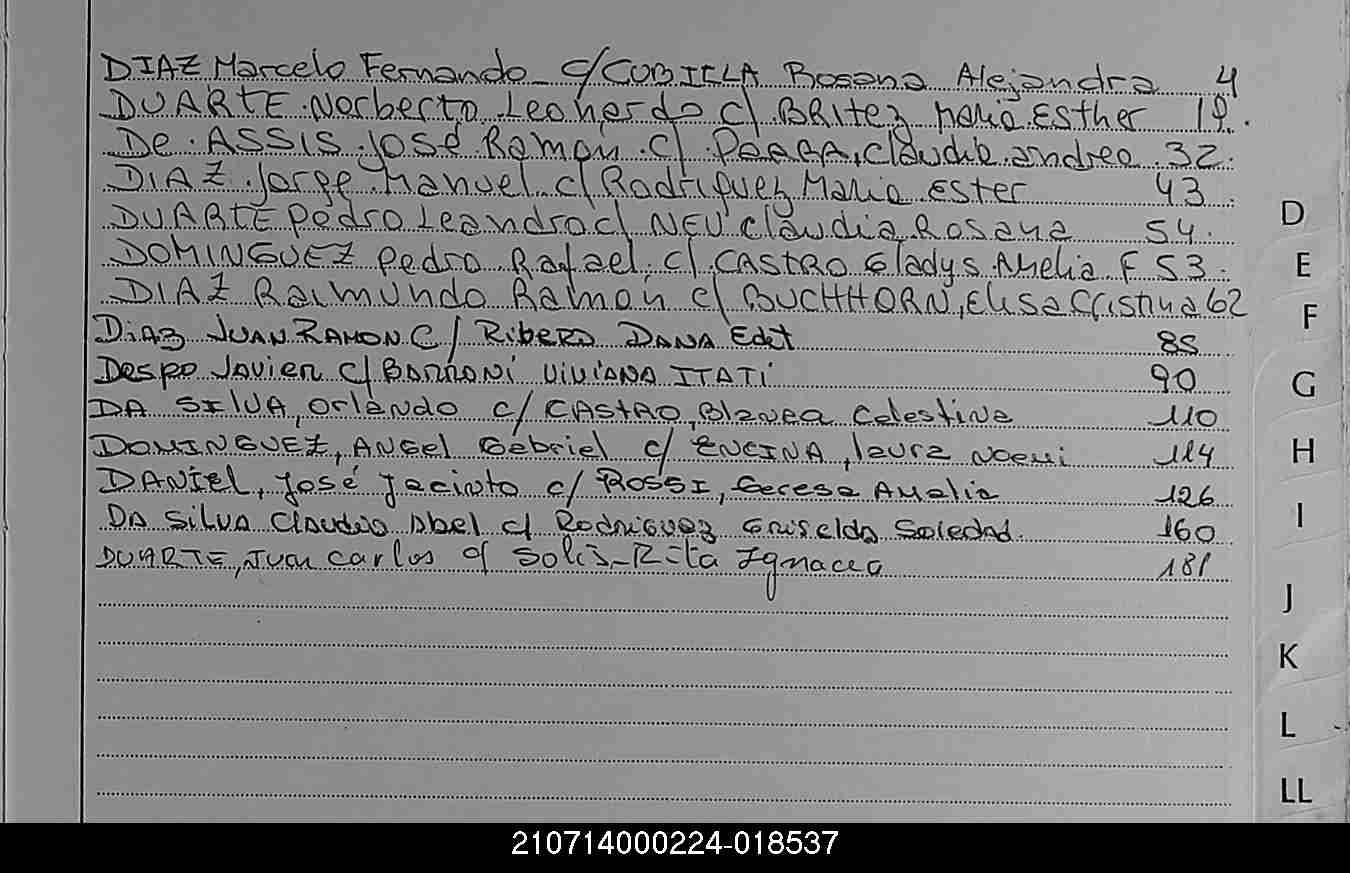 DIAZ Marcelo Fernando c/ CUBILLA Rosana Alejandra 4
DUARTE Norberto Leonardo c/ BRITEZ Maria Esther 19
De ASSIS José Ramon c/ Claudia andrea 32
DIAZ Jorge Manuel c/ Rodriguez Maria Ester 43
DUARTE Pedro Leandro c/ NEU Claudia Rosana 54
DOMINGUEZ Pedro Rafael c/ CASTRO Gladys Amelia F 53
DIAZ Raimundo Ramon c/ BUCHHORN, Elisa Cristina 62
DiAZ JUAN RAMON C/ RiBERO DANA Edit 85
Despo JAVIER c/ BARRONi ViViANA ITATi 90
DA SILVA, Orlando c/ CASTRO, Blanca Celestina 110
DOMINGUEZ, ANGEL Gabriel c/ ENCINA, laura Noemi 114
DANIEL, José Jacinto c/ ROSSI, Teresa Amalia 126
DA SILVA Claudio Abel c/ RODRIGUEZ Griselda Soledad 160
DUARTE, Juan Carlos c/ Solis - Rita Ignacia 181
D
E
F
G
H
I
J
K
L
LL
210714000224-018537